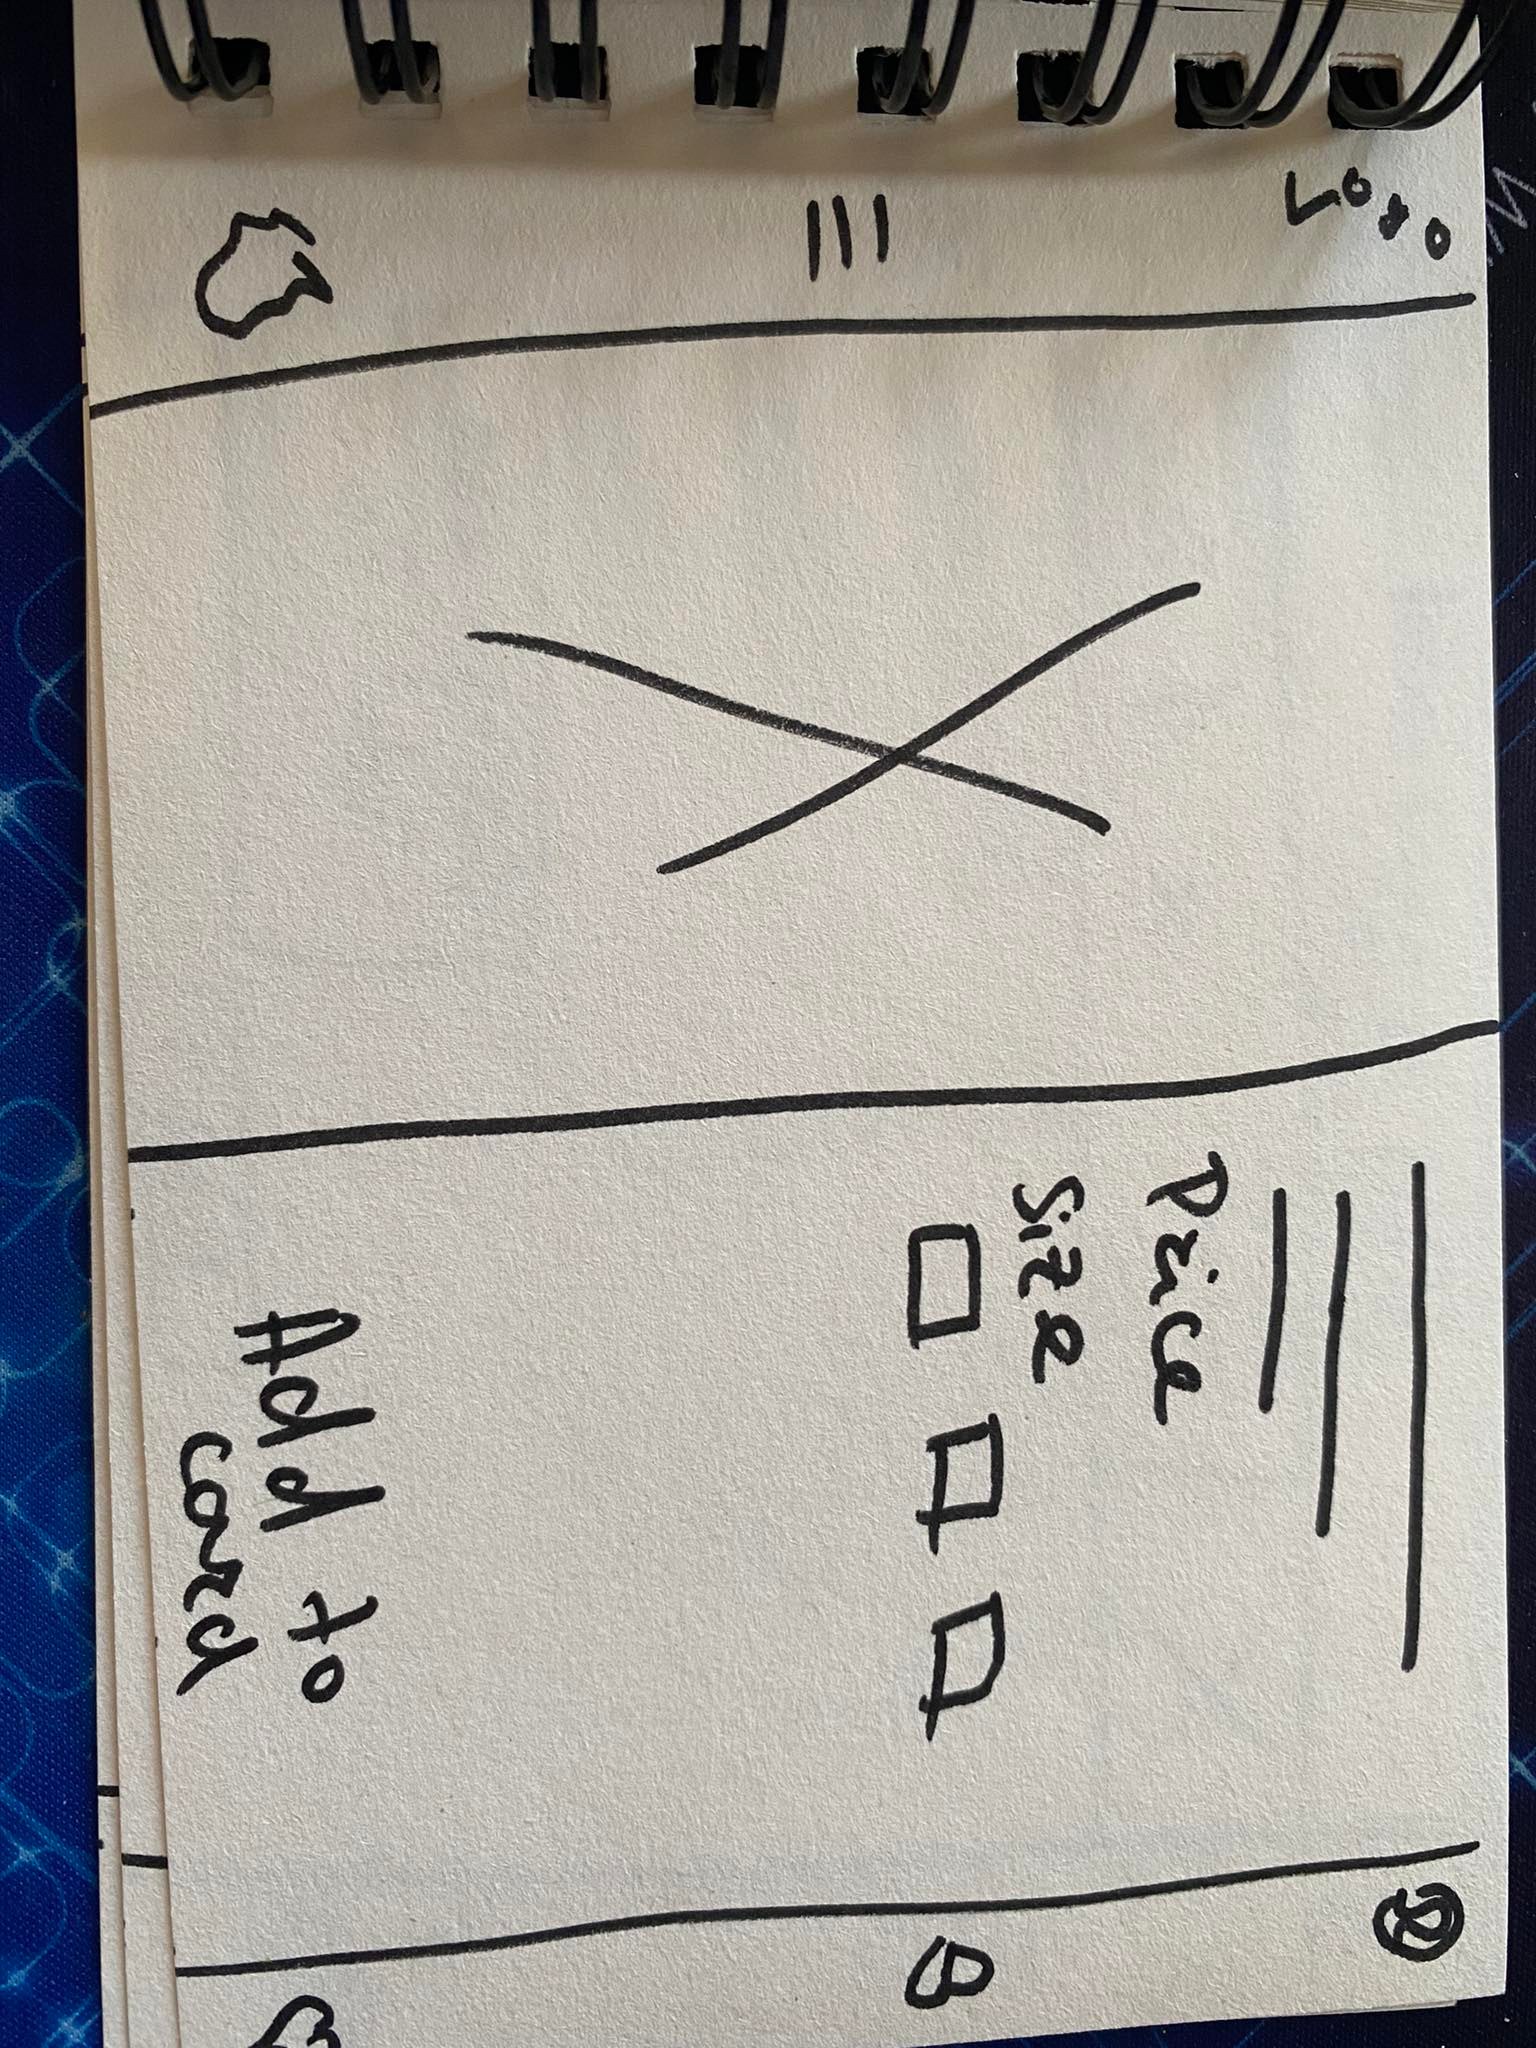 Logo
Price
Size
Add to
card